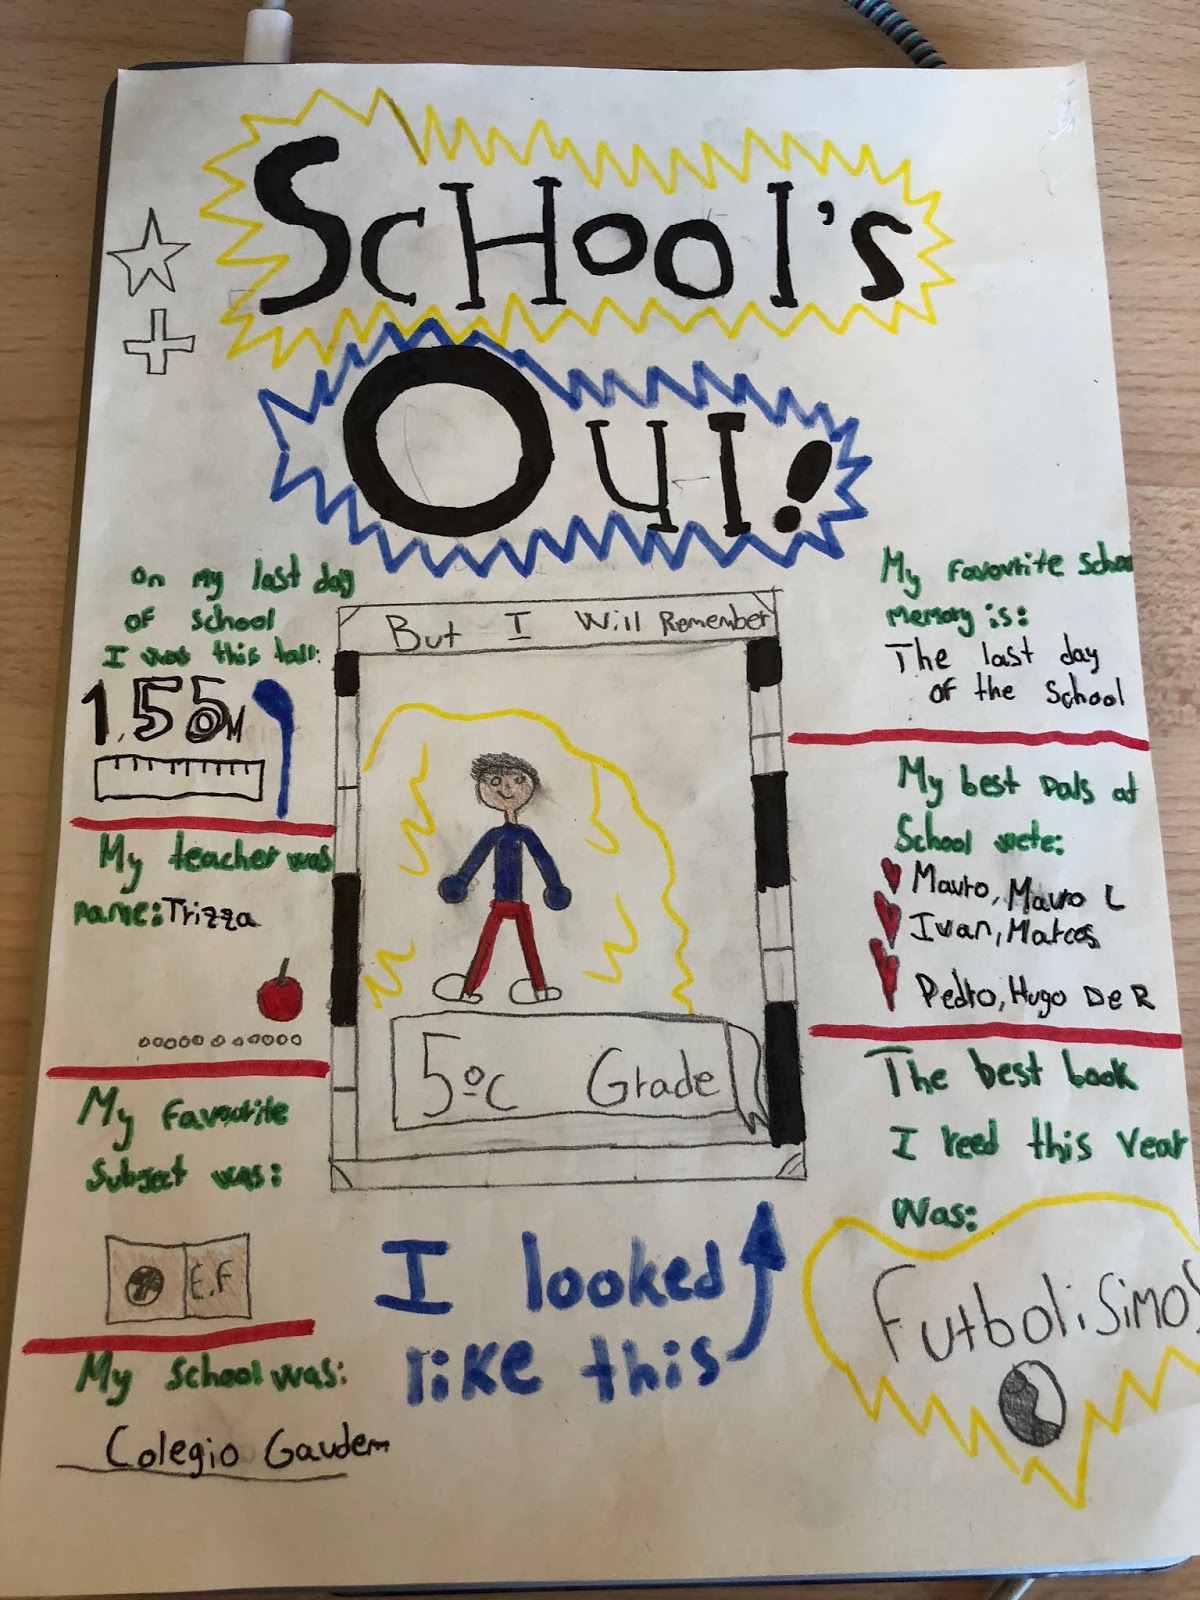 SCHOOl's
OUT!
On my last day
of school
I was this tall:
1,55M
My teacher was
name: Trizza
My favourite
subject was:
E.F
My school was:
Colegio Gaudem
But I Will Remember
5ºC Grade
I looked
like this
My favourite School
memory is:
The last day
of the School
My best pals at
School were:
Mauro, Mauro L
Ivan, Marcos
Pedro, Hugo De R
The best book
I reed this Year
Was:
Futbolisimos